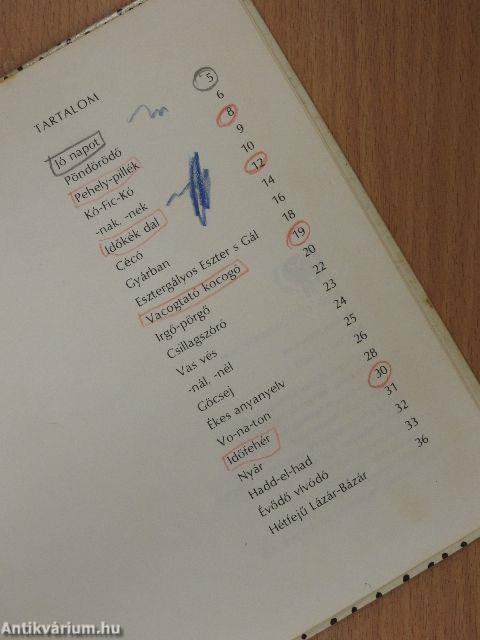 TARTALOM
Jó napot 5
Pöndörödő 6
Pehely-pillék 8
Kó-Fic-Kó 9
-nak, -nek 10
Időkék dal 12
Cécó 14
Gyárban 16
Esztergályos Eszter s Gál 18
Vacogtató kocogó 19
Irgő-pörgő 20
Csillagszóró 22
Vas vés 23
-nál, -nél 24
Göcsej 25
Ékes anyanyelv 26
Vo-na-ton 28
Időfehér 30
Nyár 31
Hadd-el-had 32
Évődő vívódó 33
Hétfejű Lázár-Bázár 36
Antikvárium.hu